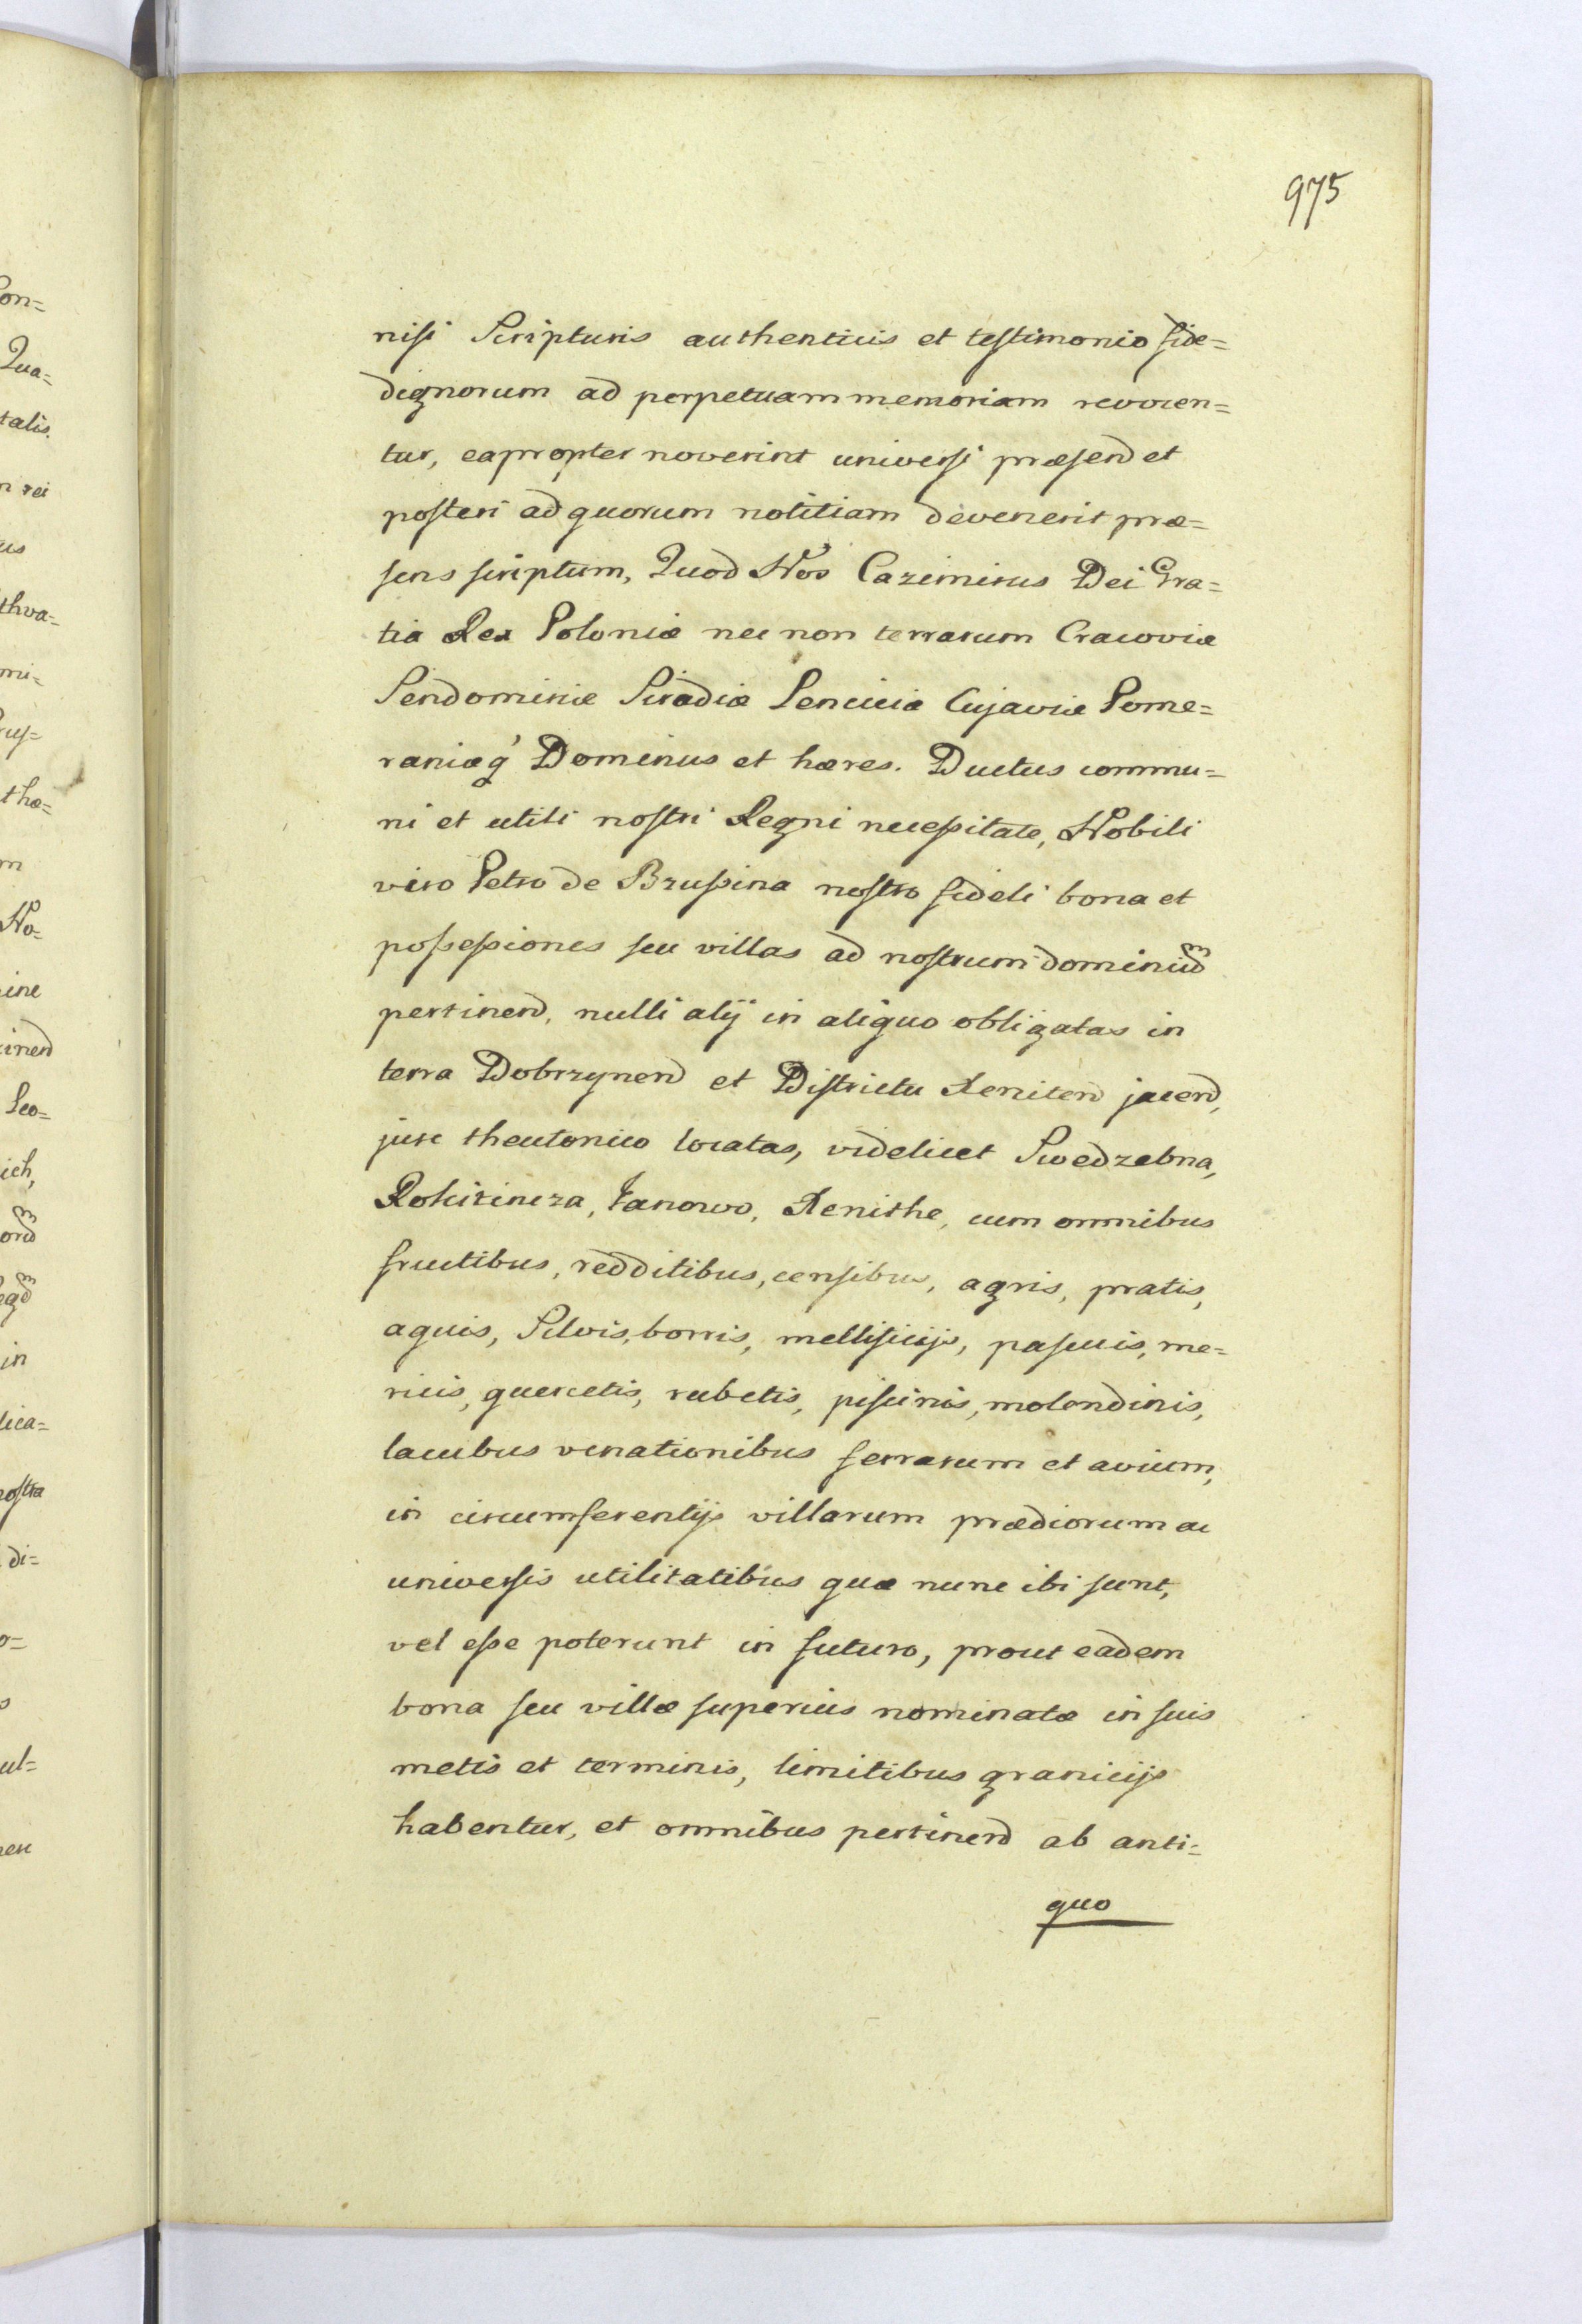 975
nisi Scripturis authenticis et testimonio fide=
dignorum ad perpetuam memoriam revocen=
tur, eapropter noverint universi præsend et
posteri ad quorum notitiam devenerit præ=
sens scriptum, Quod Nos Cazimirus Dei Gra=
tia Rex Poloniæ nec non terrarum Cracoviæ
Sendomiriæ Siradiæ Lenciciæ Cujaviæ Pome=
raniæq' Dominus et hæres. Ductus commu=
ni et utili nostri Regni necessitate, Nobili
viro Petro de Brussina nostro fideli bona et
possessiones seu villas ad nostrum dominiũ
pertinend, nulli alij in aliquo obligatas in
terra Dobrzynend et Districtu Renitend jacend,
jure theutonico locatas, videlicet Swedzebna,
Rokitincza, Janowo, Renithe, cum omnibus
fructibus, redditibus, censibus, agris, pratis,
aquis, Silvis, borris, mellificijs, pascuis, me=
ricis, quercetis, rubetis, piscinis, molendinis,
lacubus venationibus ferrarum et avium,
in circumferentijs villarum prædiorum ac
universis utilitatibus quæ nunc ibi sunt,
vel esse poterunt in futuro, prout eadem
bona seu villæ superius nominatæ in suis
metis et terminis, limitibus granicijs
habentur, et omnibus pertinend ab anti=
quo